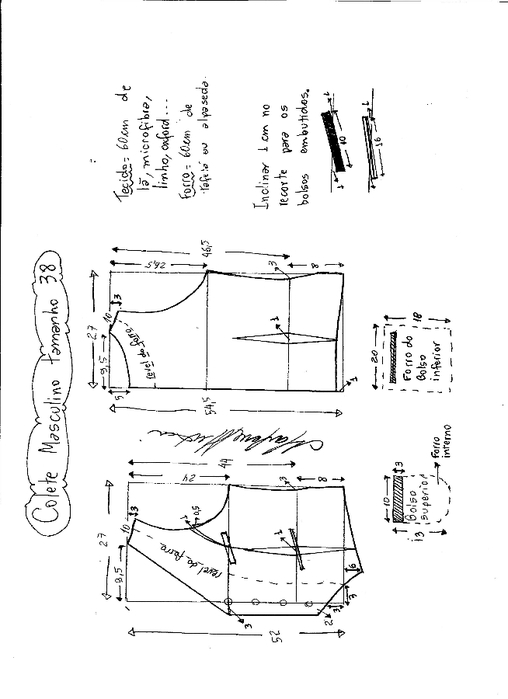 Colete Masculino Tamanho 38
Tecido = 60cm de
lã, microfibra,
linho, oxford...
Forro = 60cm de
tafetá ou alpaseda.
Inclinar 1 cm no
recorte para os
bolsos embutidos.
1
10
1
1
16
27
9,5
10
3
5
revel do forro
26,5
46,5
3
8
1
54,5
1
27
9,5
10
revel do forro
24
44
1
0,5
3
8
6
3
3
2
3
52
20
18
Forro do
Bolso
inferior
10
3
Bolso
superior
13
Forro
interno